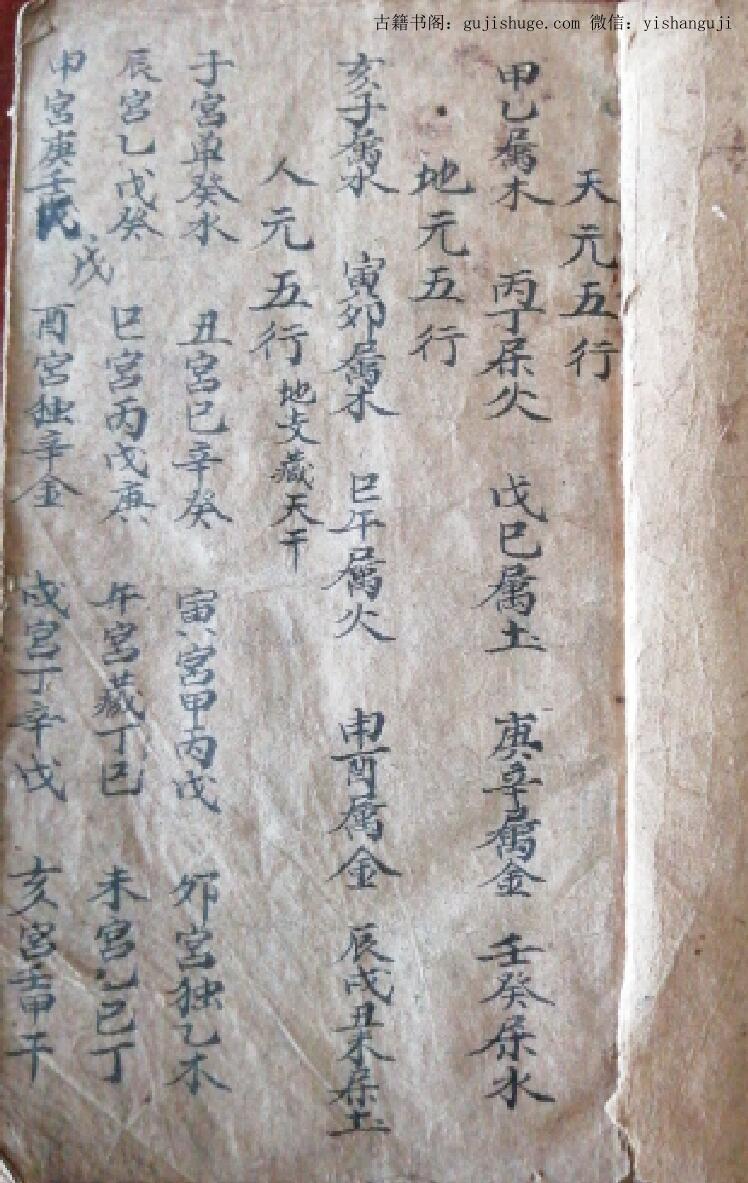 古籍书阁：gujishuge.com 微信：yishanguji
天元五行
甲乙属木 丙丁属火 戊巳属土 庚辛属金 壬癸属水
地元五行
亥子属水 寅卯属木 巳午属火 申酉属金 辰戌丑未属土
人元五行 地支藏天干
子宫单癸水 丑宫巳辛癸 寅宫甲丙戊 卯宫独乙木
辰宫乙戊癸 巳宫丙戊庚 午宫藏丁巳 未宫乙巳丁
申宫庚壬戊 酉宫独辛金 戌宫丁辛戊 亥宫壬甲干